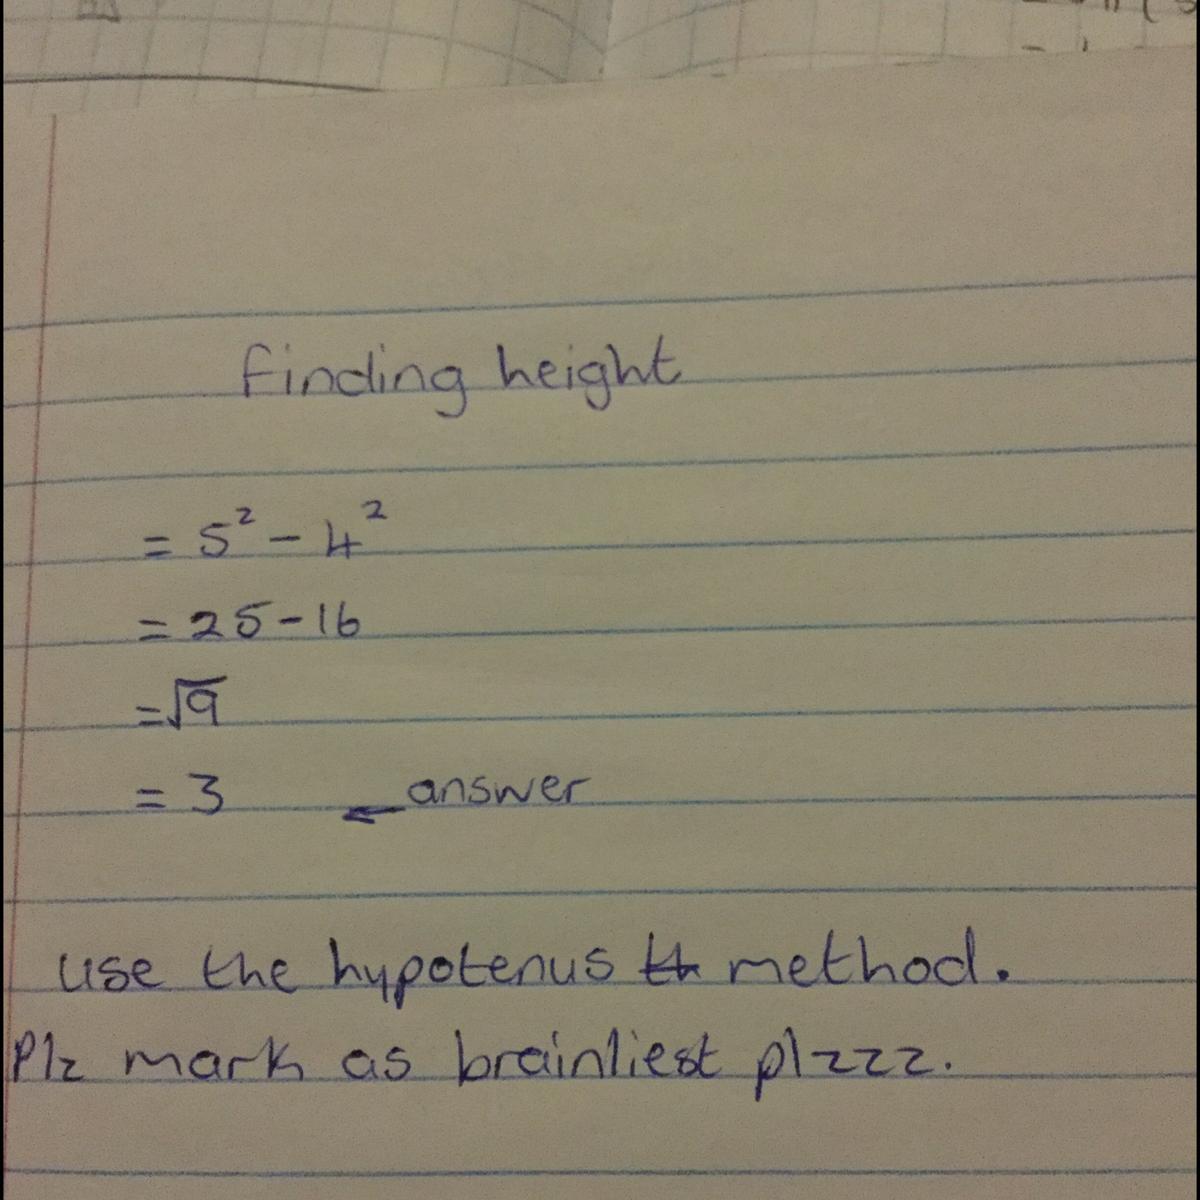 finding height
= 5² - 4²
= 25 - 16
= √9
= 3 ← answer
use the hypotenus th method.
Plz mark as brainliest plzzz.